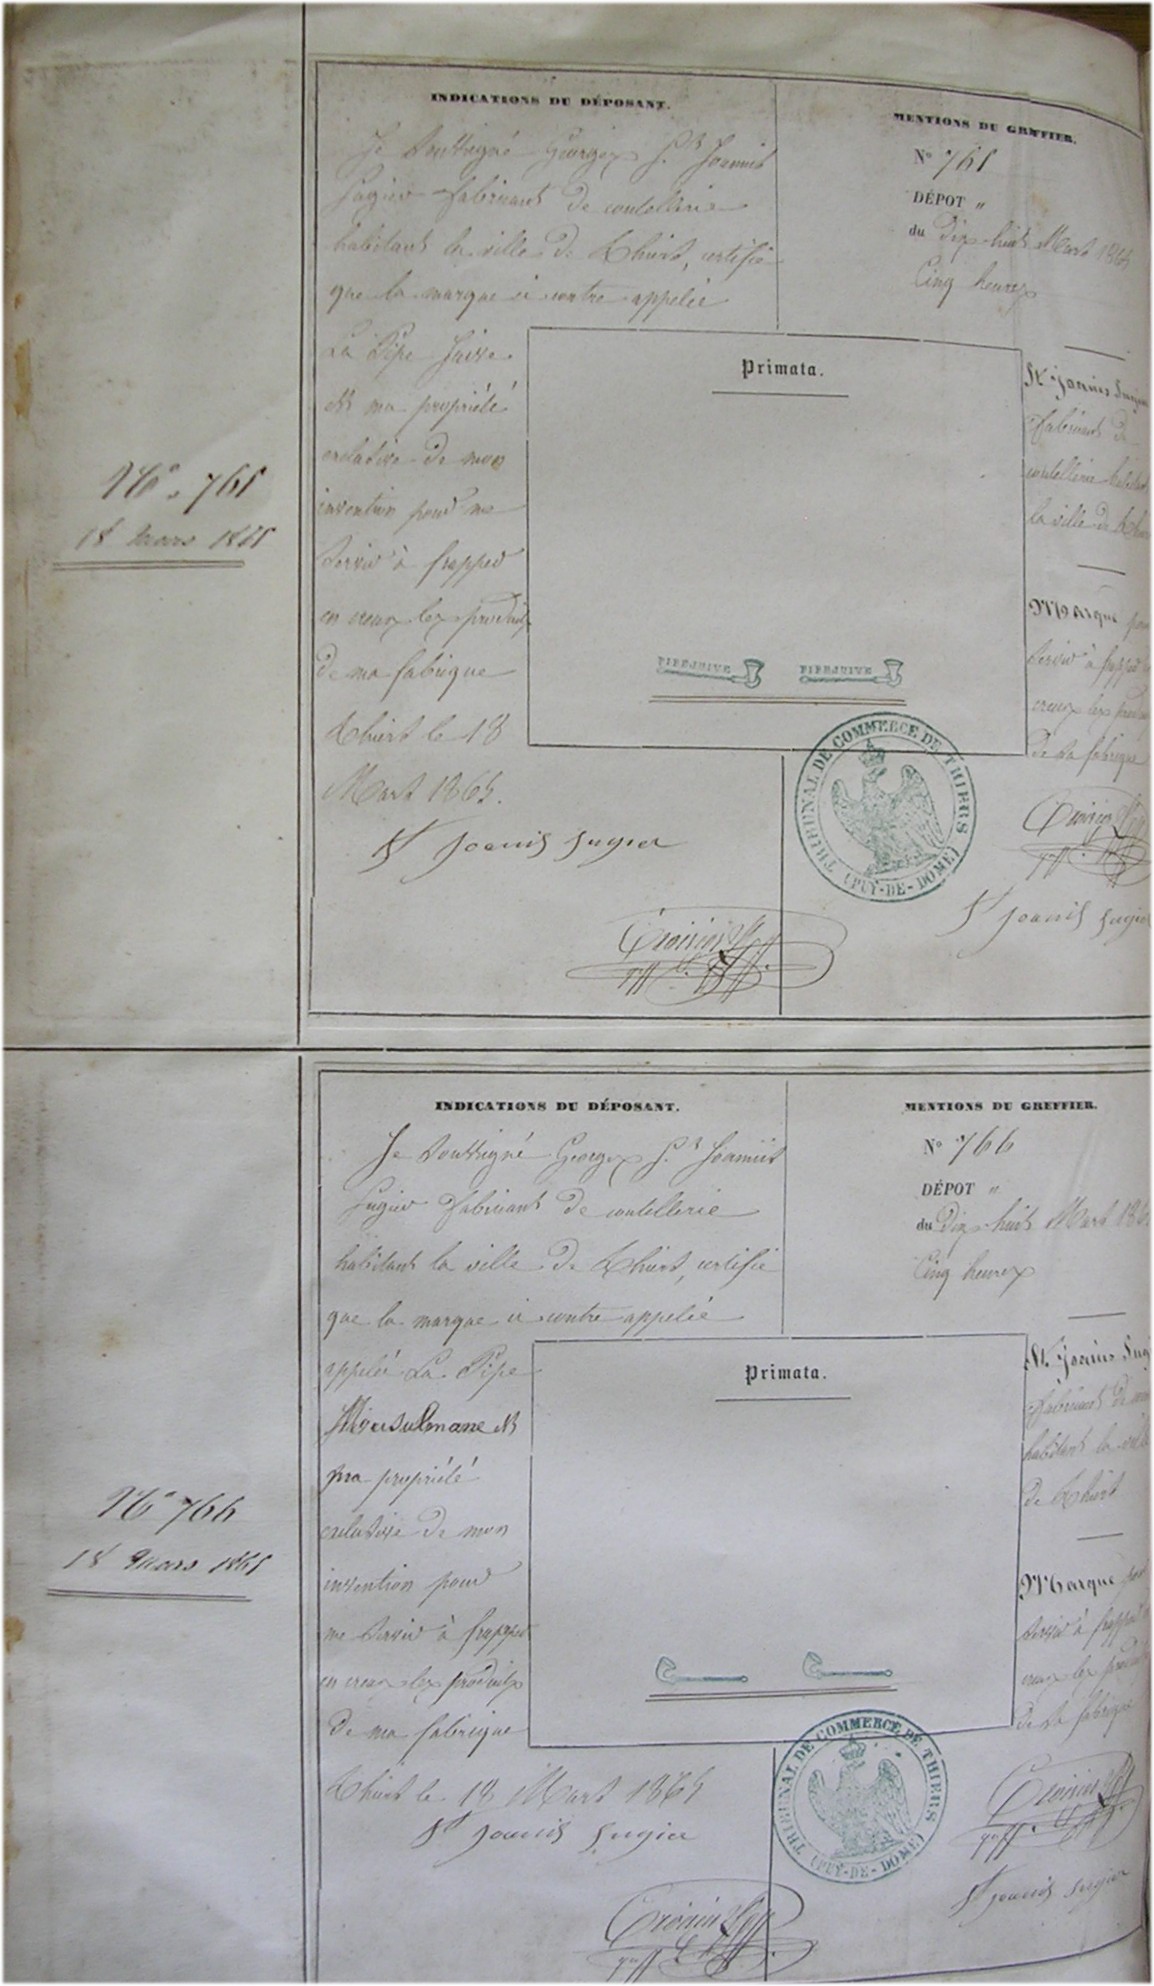 INDICATIONS DU DÉPOSANT.
Je Soussigné Georges St. Joannis
Sugier fabricant de coutellerie
habitant la ville de Thiers, certifie
que la marque ci contre appelée
La Pipe Juive
est ma propriété
exclusive de mon
invention pour me
servir à frapper
en creux les produits
de ma fabrique
Thiers le 18
Mars 1865.
St Joanis Sugier
N° 765
18 Mars 1865
MENTIONS DU GREFFIER.
N° 765
DÉPOT "
du Dix huit Mars 1865
Cinq heures
Primata.
PIPEJUIVE PIPEJUIVE
St. Joanis Sugier
fabricant de
coutellerie habitant
la ville de Thiers
Marque pour
servir à frapper en
creux les produits
de sa fabrique
TRIBUNAL DE COMMERCE DE THIERS
(PUY-DE-DOME)
St Joanis Sugier
INDICATIONS DU DÉPOSANT.
Je Soussigné Georges St. Joannis
Sugier fabricant de coutellerie
habitant la ville de Thiers, certifie
que la marque ci contre appelée
appelée La Pipe
Musulmane est
ma propriété
exclusive de mon
invention pour
me servir à frapper
en creux les produits
de ma fabrique
Thiers le 18 Mars 1865
St Joanis Sugier
N° 766
18 Mars 1865
MENTIONS DU GREFFIER.
N° 766
DÉPOT "
du Dix huit Mars 186
Cinq heures
Primata.
St. Joanis Sug
fabricant de
habitant la ville
de Thiers
Marque pour
servir à frapper
creux les produits
de sa fabrique
TRIBUNAL DE COMMERCE DE THIERS
(PUY-DE-DOME)
St Joanis Sugier